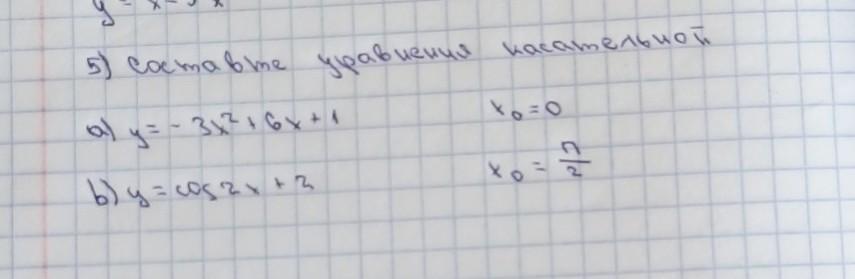 5) Составте уравнения касательной
a) y = - 3x² + 6x + 1 x₀ = 0
b) y = cos 2x + 2 x₀ = π/2